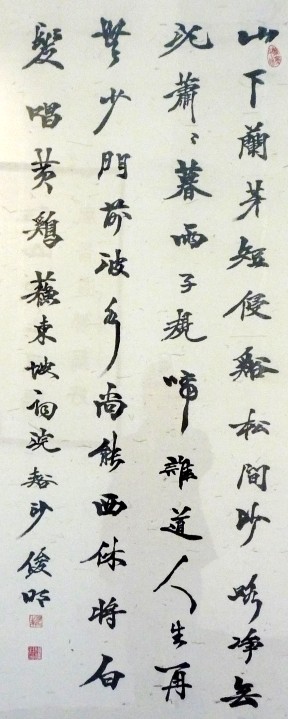 山下蘭芽短浸谿松間沙路净無
泥蕭々暮雨子規啼誰道人生再
無少門前流水尚能西休將白
髮唱黄鷄蘇東坡詞浣谿沙俊明